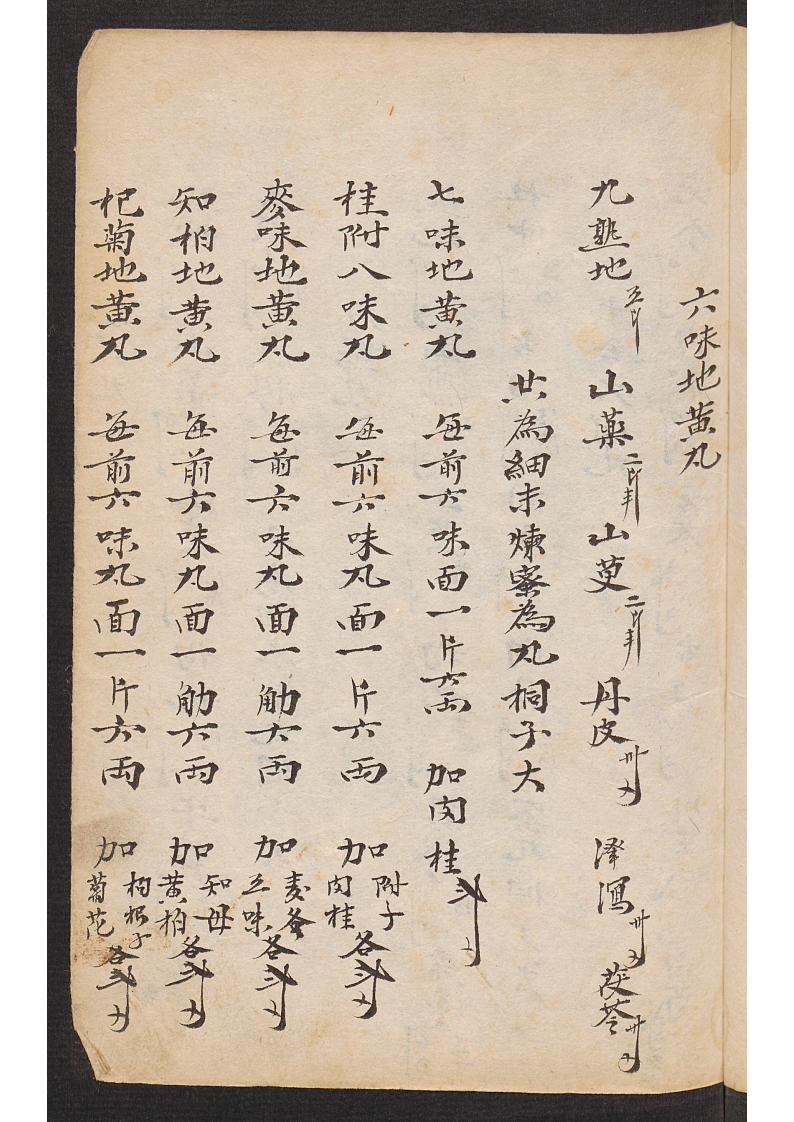 六味地黄丸
九熟地五斤 山薬二斤半 山萸二斤半 丹皮卅 澤瀉卅 茯苓卅
共為細末煉蜜為丸桐子大
七味地黄丸 每前六味面一斤六兩 加肉桂
桂附八味丸 每前六味丸面一斤六兩 加附子肉桂各
麥味地黄丸 每前六味丸面一觔六兩 加麦冬五味各
知柏地黄丸 每前六味丸面一觔六兩 加知母黄柏各
杞菊地黄丸 每前六味丸面一斤六兩 加枸杞子菊花各